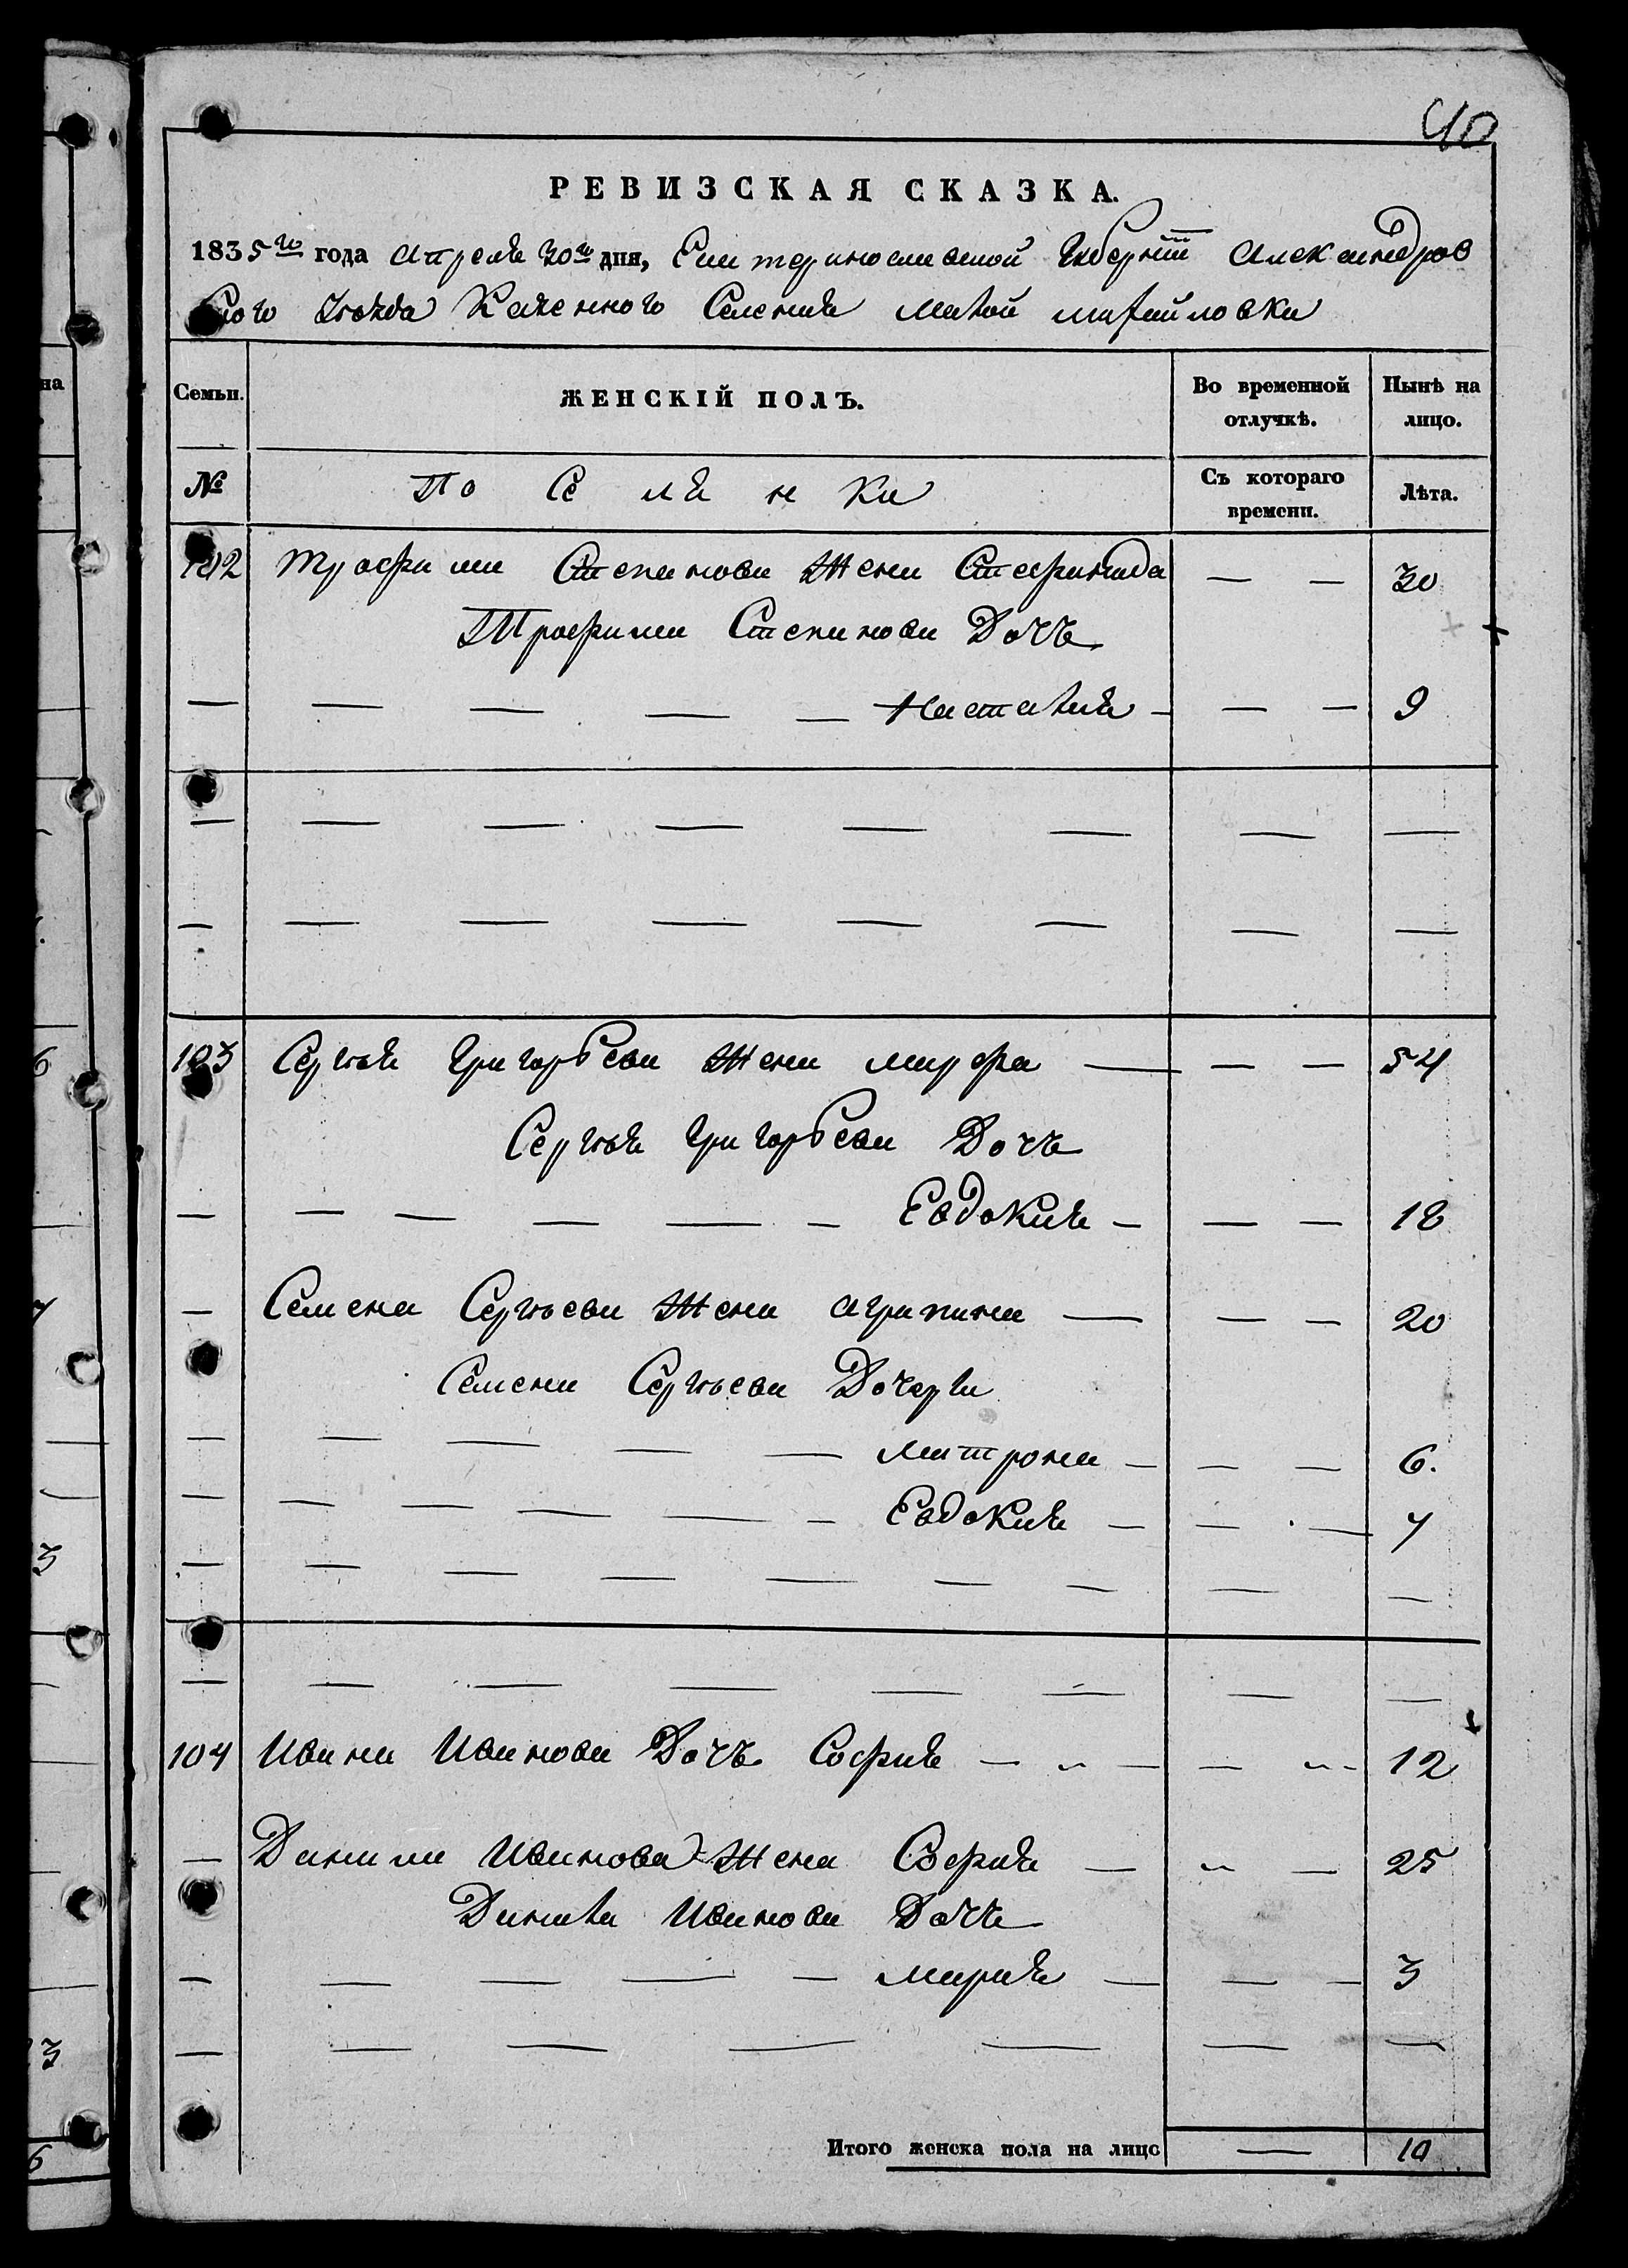 40
РЕВИЗСКАЯ СКАЗКА.
1835го года апреля 30го дня, Екатеринославской Губернии Александров
ского уезда Казенного Селения малой михайловки
Семьи. ЖЕНСКІЙ ПОЛЪ. Во временной отлучкѣ. Нынѣ на лицо.
№ По се ля н ки Съ котораго времени. Лѣта.
102 трофима Степанова жена Стефанида — — 30
Трофима Степанова Дочь
— — — — — Наталия — — — 9
— — — — — — — —
— — — — — — — —
103 Сергея григорьева жена марфа — — — 54
Сергея григорьева Дочь
— — — — — — Евдокия — — — 18
— Семена Сергеева жена агрипина — — — 20
Семена Сергеева Дочери
— — — — — матрона — — — 6.
— — — — — — Евдокия — — — 4
— — — — — — — — —
— — — — — — — —
104 Ивана Иванова Дочь София — — — — 12
— Данила Иванова жена София — — — 25
Данила Иванова Дочь
— — — — — мария — — — 3
— — — — — — —
Итого женска пола на лицо — 10